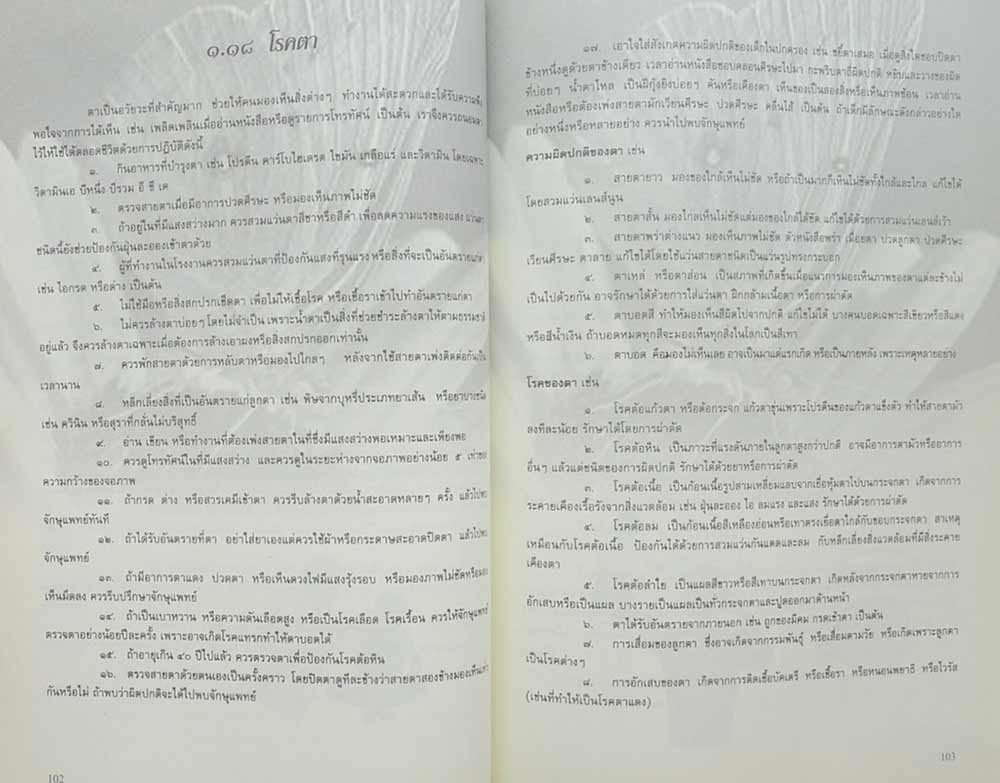 ๑.๑๘ โรคตา
ตาเป็นอวัยวะที่สำคัญมาก ช่วยให้คนมองเห็นสิ่งต่างๆ ทำงานได้สะดวกและได้รับความพึง
พอใจจากการได้เห็น เช่น เพลิดเพลินเมื่ออ่านหนังสือหรือดูรายการโทรทัศน์ เป็นต้น เราจึงควรถนอมตา
ไว้ให้ใช้ได้ตลอดชีวิตด้วยการปฏิบัติดังนี้
๑. กินอาหารที่บำรุงตา เช่น โปรตีน คาร์โบไฮเดรต ไขมัน เกลือแร่ และวิตามิน โดยเฉพาะ
วิตามินเอ บีหนึ่ง บีรวม อี ซี เค
๒. ตรวจสายตาเมื่อมีอาการปวดศีรษะ หรือมองเห็นภาพไม่ชัด
๓. ถ้าอยู่ในที่มีแสงสว่างมาก ควรสวมแว่นตาสีชาหรือสีดำ เพื่อลดความแรงของแสง แว่นตา
ชนิดนี้ยังช่วยป้องกันฝุ่นละอองเข้าตาด้วย
๔. ผู้ที่ทำงานในโรงงานควรสวมแว่นตาที่ป้องกันแสงที่รุนแรง หรือสิ่งที่จะเป็นอันตรายแก่ตา
เช่น ไอกรด หรือด่าง เป็นต้น
๕. ไม่ใช้มือหรือสิ่งสกปรกเช็ดตา เพื่อไม่ให้เชื้อโรค หรือเชื้อราเข้าไปทำอันตรายแก่ตา
๖. ไม่ควรล้างตาบ่อยๆ โดยไม่จำเป็น เพราะน้ำตาเป็นสิ่งที่ช่วยชำระล้างตาให้ตามธรรมชาติ
อยู่แล้ว จึงควรล้างตาเฉพาะเมื่อต้องการล้างเอาผงหรือสิ่งสกปรกออกเท่านั้น
๗. ควรพักสายตาด้วยการหลับตาหรือมองไปไกลๆ หลังจากใช้สายตาเพ่งติดต่อกันเป็น
เวลานาน
๘. หลีกเลี่ยงสิ่งที่เป็นอันตรายแก่ลูกตา เช่น พิษจากบุหรี่ประเภทยาเส้น หรือยาบางชนิด
เช่น ควินิน หรือสุราที่กลั่นไม่บริสุทธิ์
๙. อ่าน เขียน หรือทำงานที่ต้องเพ่งสายตาในที่ซึ่งมีแสงสว่างพอเหมาะและเพียงพอ
๑๐. ควรดูโทรทัศน์ในที่มีแสงสว่าง และควรดูในระยะห่างจากจอภาพอย่างน้อย ๕ เท่าของ
ความกว้างของจอภาพ
๑๑. ถ้ากรด ด่าง หรือสารเคมีเข้าตา ควรรีบล้างตาด้วยน้ำสะอาดหลายๆ ครั้ง แล้วไปพบ
จักษุแพทย์ทันที
๑๒. ถ้าได้รับอันตรายที่ตา อย่าใส่ยาเองแต่ควรใช้ผ้าหรือกระดาษสะอาดปิดตา แล้วไปพบ
จักษุแพทย์
๑๓. ถ้ามีอาการตาแดง ปวดตา หรือเห็นดวงไฟมีแสงรุ้งรอบ หรือมองภาพไม่ชัดหรือมอง
เห็นมืดลง ควรรีบปรึกษาจักษุแพทย์
๑๔. ถ้าเป็นเบาหวาน หรือความดันเลือดสูง หรือเป็นโรคเลือด โรคเรื้อน ควรให้จักษุแพทย์
ตรวจตาอย่างน้อยปีละครั้ง เพราะอาจเกิดโรคแทรกทำให้ตาบอดได้
๑๕. ถ้าอายุเกิน ๔๐ ปีไปแล้ว ควรตรวจตาเพื่อป้องกันโรคต้อหิน
๑๖. ตรวจสายตาด้วยตนเองเป็นครั้งคราว โดยปิดตาดูทีละข้างว่าสายตาสองข้างมองเห็นเท่า
กันหรือไม่ ถ้าพบว่าผิดปกติจะได้ไปพบจักษุแพทย์
102
๑๗. เอาใจใส่สังเกตความผิดปกติของเด็กในปกครอง เช่น ขยี้ตาเสมอ เมื่อดูสิ่งใดชอบปิดตา
ข้างหนึ่งดูด้วยตาข้างเดียว เวลาอ่านหนังสือชอบคลอนศีรษะไปมา กะพริบตาถี่ผิดปกติ หยิบและวางของผิด
ที่บ่อยๆ น้ำตาไหล เป็นกุ้งยิงบ่อยๆ คันหรือเคืองตา เห็นของเป็นสองสิ่งหรือเห็นภาพซ้อน เวลาอ่าน
หนังสือหรือต้องเพ่งสายตามักเวียนศีรษะ ปวดศีรษะ คลื่นไส้ เป็นต้น ถ้าเด็กมีลักษณะดังกล่าวอย่างใด
อย่างหนึ่งหรือหลายอย่าง ควรนำไปพบจักษุแพทย์
ความผิดปกติของตา เช่น
๑. สายตายาว มองของใกล้เห็นไม่ชัด หรือถ้าเป็นมากก็เห็นไม่ชัดทั้งใกล้และไกล แก้ไขได้
โดยสวมแว่นเลนส์นูน
๒. สายตาสั้น มองไกลเห็นไม่ชัดแต่มองของใกล้ได้ชัด แก้ไขได้ด้วยการสวมแว่นเลนส์เว้า
๓. สายตาพร่าต่างแนว มองเห็นภาพไม่ชัด ตัวหนังสือพร่า เมื่อยตา ปวดลูกตา ปวดศีรษะ
เวียนศีรษะ ตาลาย แก้ไขได้โดยใช้แว่นสายตาชนิดเป็นแว่นรูปทรงกระบอก
๔. ตาเหล่ หรือตาส่อน เป็นสภาพที่เกิดขึ้นเมื่อแนวการมองเห็นภาพของตาแต่ละข้างไม่
เป็นไปด้วยกัน อาจรักษาได้ด้วยการใส่แว่นตา ฝึกกล้ามเนื้อตา หรือการผ่าตัด
๕. ตาบอดสี ทำให้มองเห็นสีผิดไปจากปกติ แก้ไขไม่ได้ บางคนบอดเฉพาะสีเขียวหรือสีแดง
หรือสีน้ำเงิน ถ้าบอดหมดทุกสีจะมองเห็นทุกสิ่งในโลกเป็นสีเทา
๖. ตาบอด คือมองไม่เห็นเลย อาจเป็นมาแต่แรกเกิด หรือเป็นภายหลัง เพราะเหตุหลายอย่าง
โรคของตา เช่น
๑. โรคต้อแก้วตา หรือต้อกระจก แก้วตาขุ่นเพราะโปรตีนของแก้วตาแข็งตัว ทำให้สายตามัว
ลงทีละน้อย รักษาได้โดยการผ่าตัด
๒. โรคต้อหิน เป็นภาวะที่แรงดันภายในลูกตาสูงกว่าปกติ อาจมีอาการตามัวหรืออาการ
อื่นๆ แล้วแต่ชนิดของการผิดปกติ รักษาได้ด้วยยาหรือการผ่าตัด
๓. โรคต้อเนื้อ เป็นก้อนเนื้อรูปสามเหลี่ยมแลบจากเยื่อหุ้มตาไปบนกระจกตา เกิดจากการ
ระคายเคืองเรื้อรังจากสิ่งแวดล้อม เช่น ฝุ่นละออง ไอ ลมแรง และแสง รักษาได้ด้วยการผ่าตัด
๔. โรคต้อลม เป็นก้อนเนื้อสีเหลืองอ่อนหรือเทาตรงเยื่อตาใกล้กับขอบกระจกตา สาเหตุ
เหมือนกับโรคต้อเนื้อ ป้องกันได้ด้วยการสวมแว่นกันแดดและลม กับหลีกเลี่ยงสิ่งแวดล้อมที่มีสิ่งระคาย
เคืองตา
๕. โรคต้อลำไย เป็นแผลสีขาวหรือสีเทาบนกระจกตา เกิดหลังจากกระจกตาหายจากการ
อักเสบหรือเป็นแผล บางรายเป็นแผลเป็นทั่วกระจกตาและปูดออกมาด้านหน้า
๖. ตาได้รับอันตรายจากภายนอก เช่น ถูกของมีคม กรดเข้าตา เป็นต้น
๗. การเสื่อมของลูกตา ซึ่งอาจเกิดจากกรรมพันธุ์ หรือเสื่อมตามวัย หรือเกิดเพราะลูกตา
เป็นโรคต่างๆ
๘. การอักเสบของตา เกิดจากการติดเชื้อบัคเตรี หรือเชื้อรา หรือหนอนพยาธิ หรือไวรัส
(เช่นที่ทำให้เป็นโรคตาแดง)
103